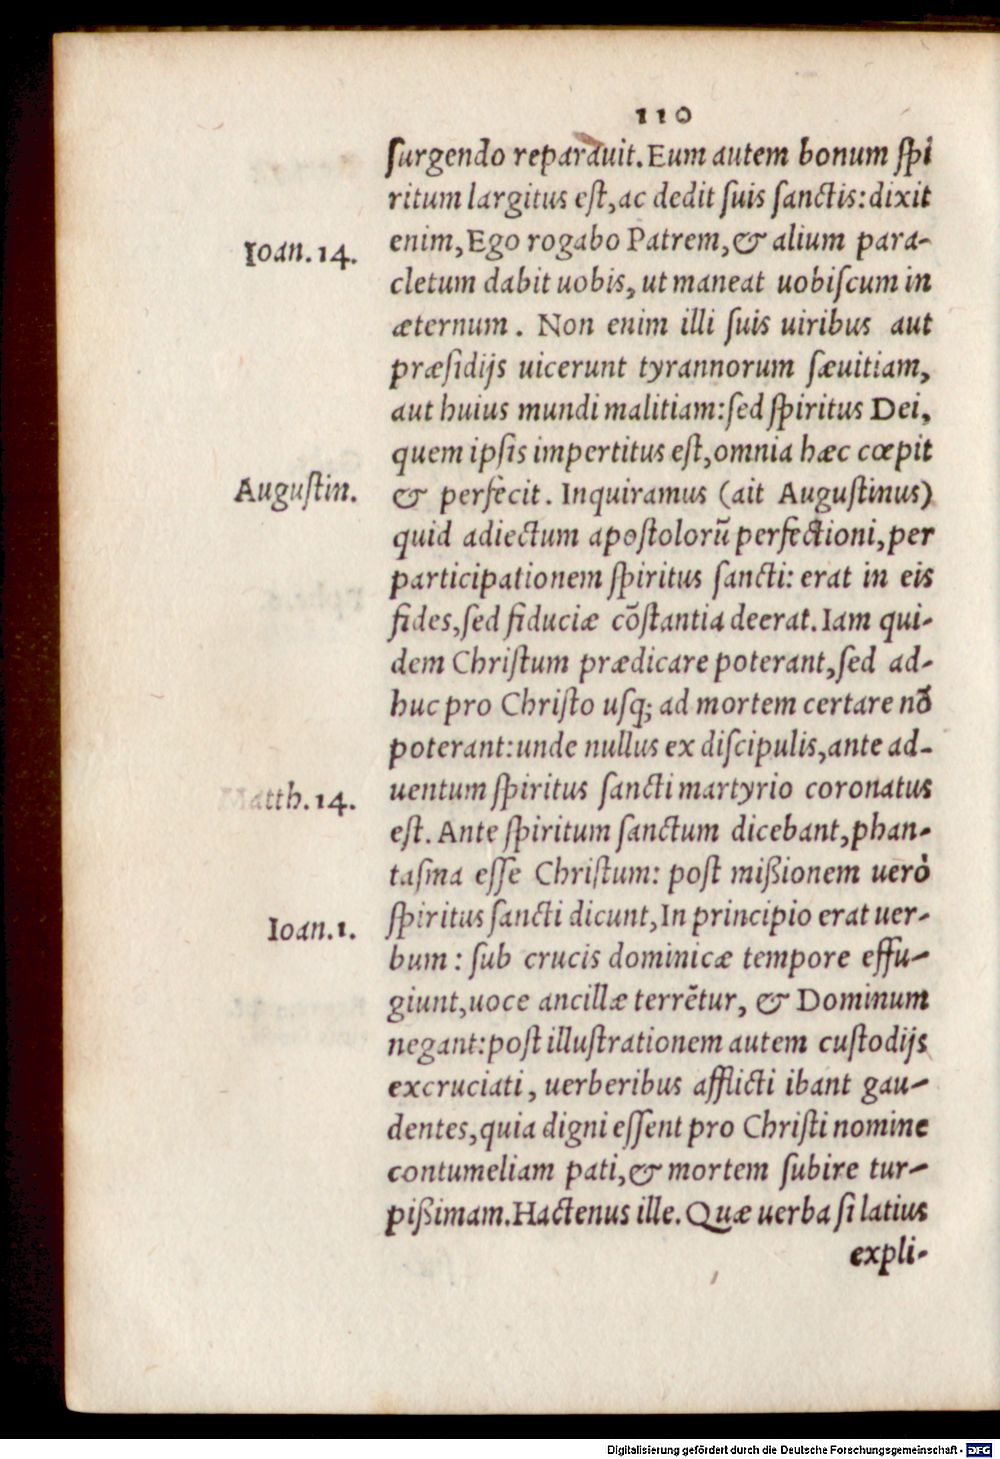 110
ſurgendo reparauit. Eum autem bonum ſpi
ritum largitus eſt, ac dedit ſuis ſanctis: dixit
Ioan. 14.
enim, Ego rogabo Patrem, & alium para-
cletum dabit uobis, ut maneat uobiſcum in
æternum. Non enim illi ſuis uiribus aut
præſidijs uicerunt tyrannorum ſæuitiam,
aut huius mundi malitiam: ſed ſpiritus Dei,
quem ipſis impertitus eſt, omnia hæc cœpit
Auguſtin.
& perfecit. Inquiramus (ait Auguſtinus)
quid adiectum apoſtolorũ perfectioni, per
participationem ſpiritus ſancti: erat in eis
fides, ſed fiduciæ cõſtantia deerat. Iam qui-
dem Chriſtum prædicare poterant, ſed ad-
huc pro Chriſto uſq; ad mortem certare nõ
poterant: unde nullus ex diſcipulis, ante ad-
Matth. 14.
uentum ſpiritus ſancti martyrio coronatus
eſt. Ante ſpiritum ſanctum dicebant, phan-
taſma eſſe Chriſtum: poſt mißionem uerò
Ioan. 1.
ſpiritus ſancti dicunt, In principio erat uer-
bum: ſub crucis dominicæ tempore effu-
giunt, uoce ancillæ terrẽtur, & Dominum
negant: poſt illuſtrationem autem cuſtodijs
excruciati, uerberibus afflicti ibant gau-
dentes, quia digni eſſent pro Chriſti nomine
contumeliam pati, & mortem ſubire tur-
pißimam. Hactenus ille. Quæ uerba ſi latius
expli-
Digitalisierung gefördert durch die Deutsche Forschungsgemeinschaft - DFG